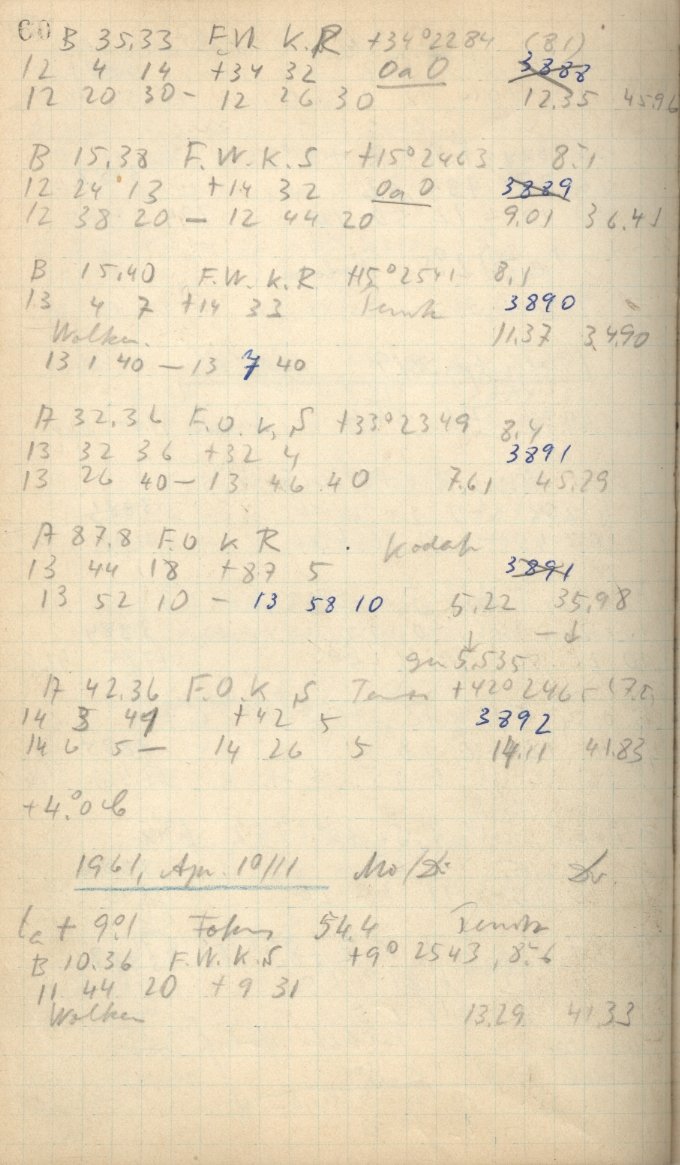 60 B 35.33 F.W. K.R +34°2284 (8.1)
12 4 14 +34 32 0a0 3888
12 20 30 - 12 26 30 12.35 45.96
B 15.38 F.W.K.S +15°2463 8.1
12 24 13 +14 32 0a0 3889
12 38 20 — 12 44 20 9.01 36.41
B 15.40 F.W.K.R +15°2541 8.1
13 4 7 +14 33 3890
Wolken. 11.37 34.90
13 1 40 — 13 7 40
A 32.36 F.O.K.S +33°2349 8.4
13 32 36 +32 4 3891
13 26 40 — 13 46 40 7.61 45.29
A 87.8 F.O K R Kodak
13 44 18 +87 5 3891
13 52 10 — 13 58 10 5.22 35.98
5.535
A 42.36 F.O.K.S +42°2465
14 3 49 +42 5 3892
14 6 5 — 14 26 5 14.11 41.83
+4.°0 C
1961, Apr. 10/11 Mo/Di
+ 9°.1 Fokus 54.4
B 10.36 F.W.K.S +9°2543, 8.6
11 44 20 +9 31
Wolken 13.29 41.33